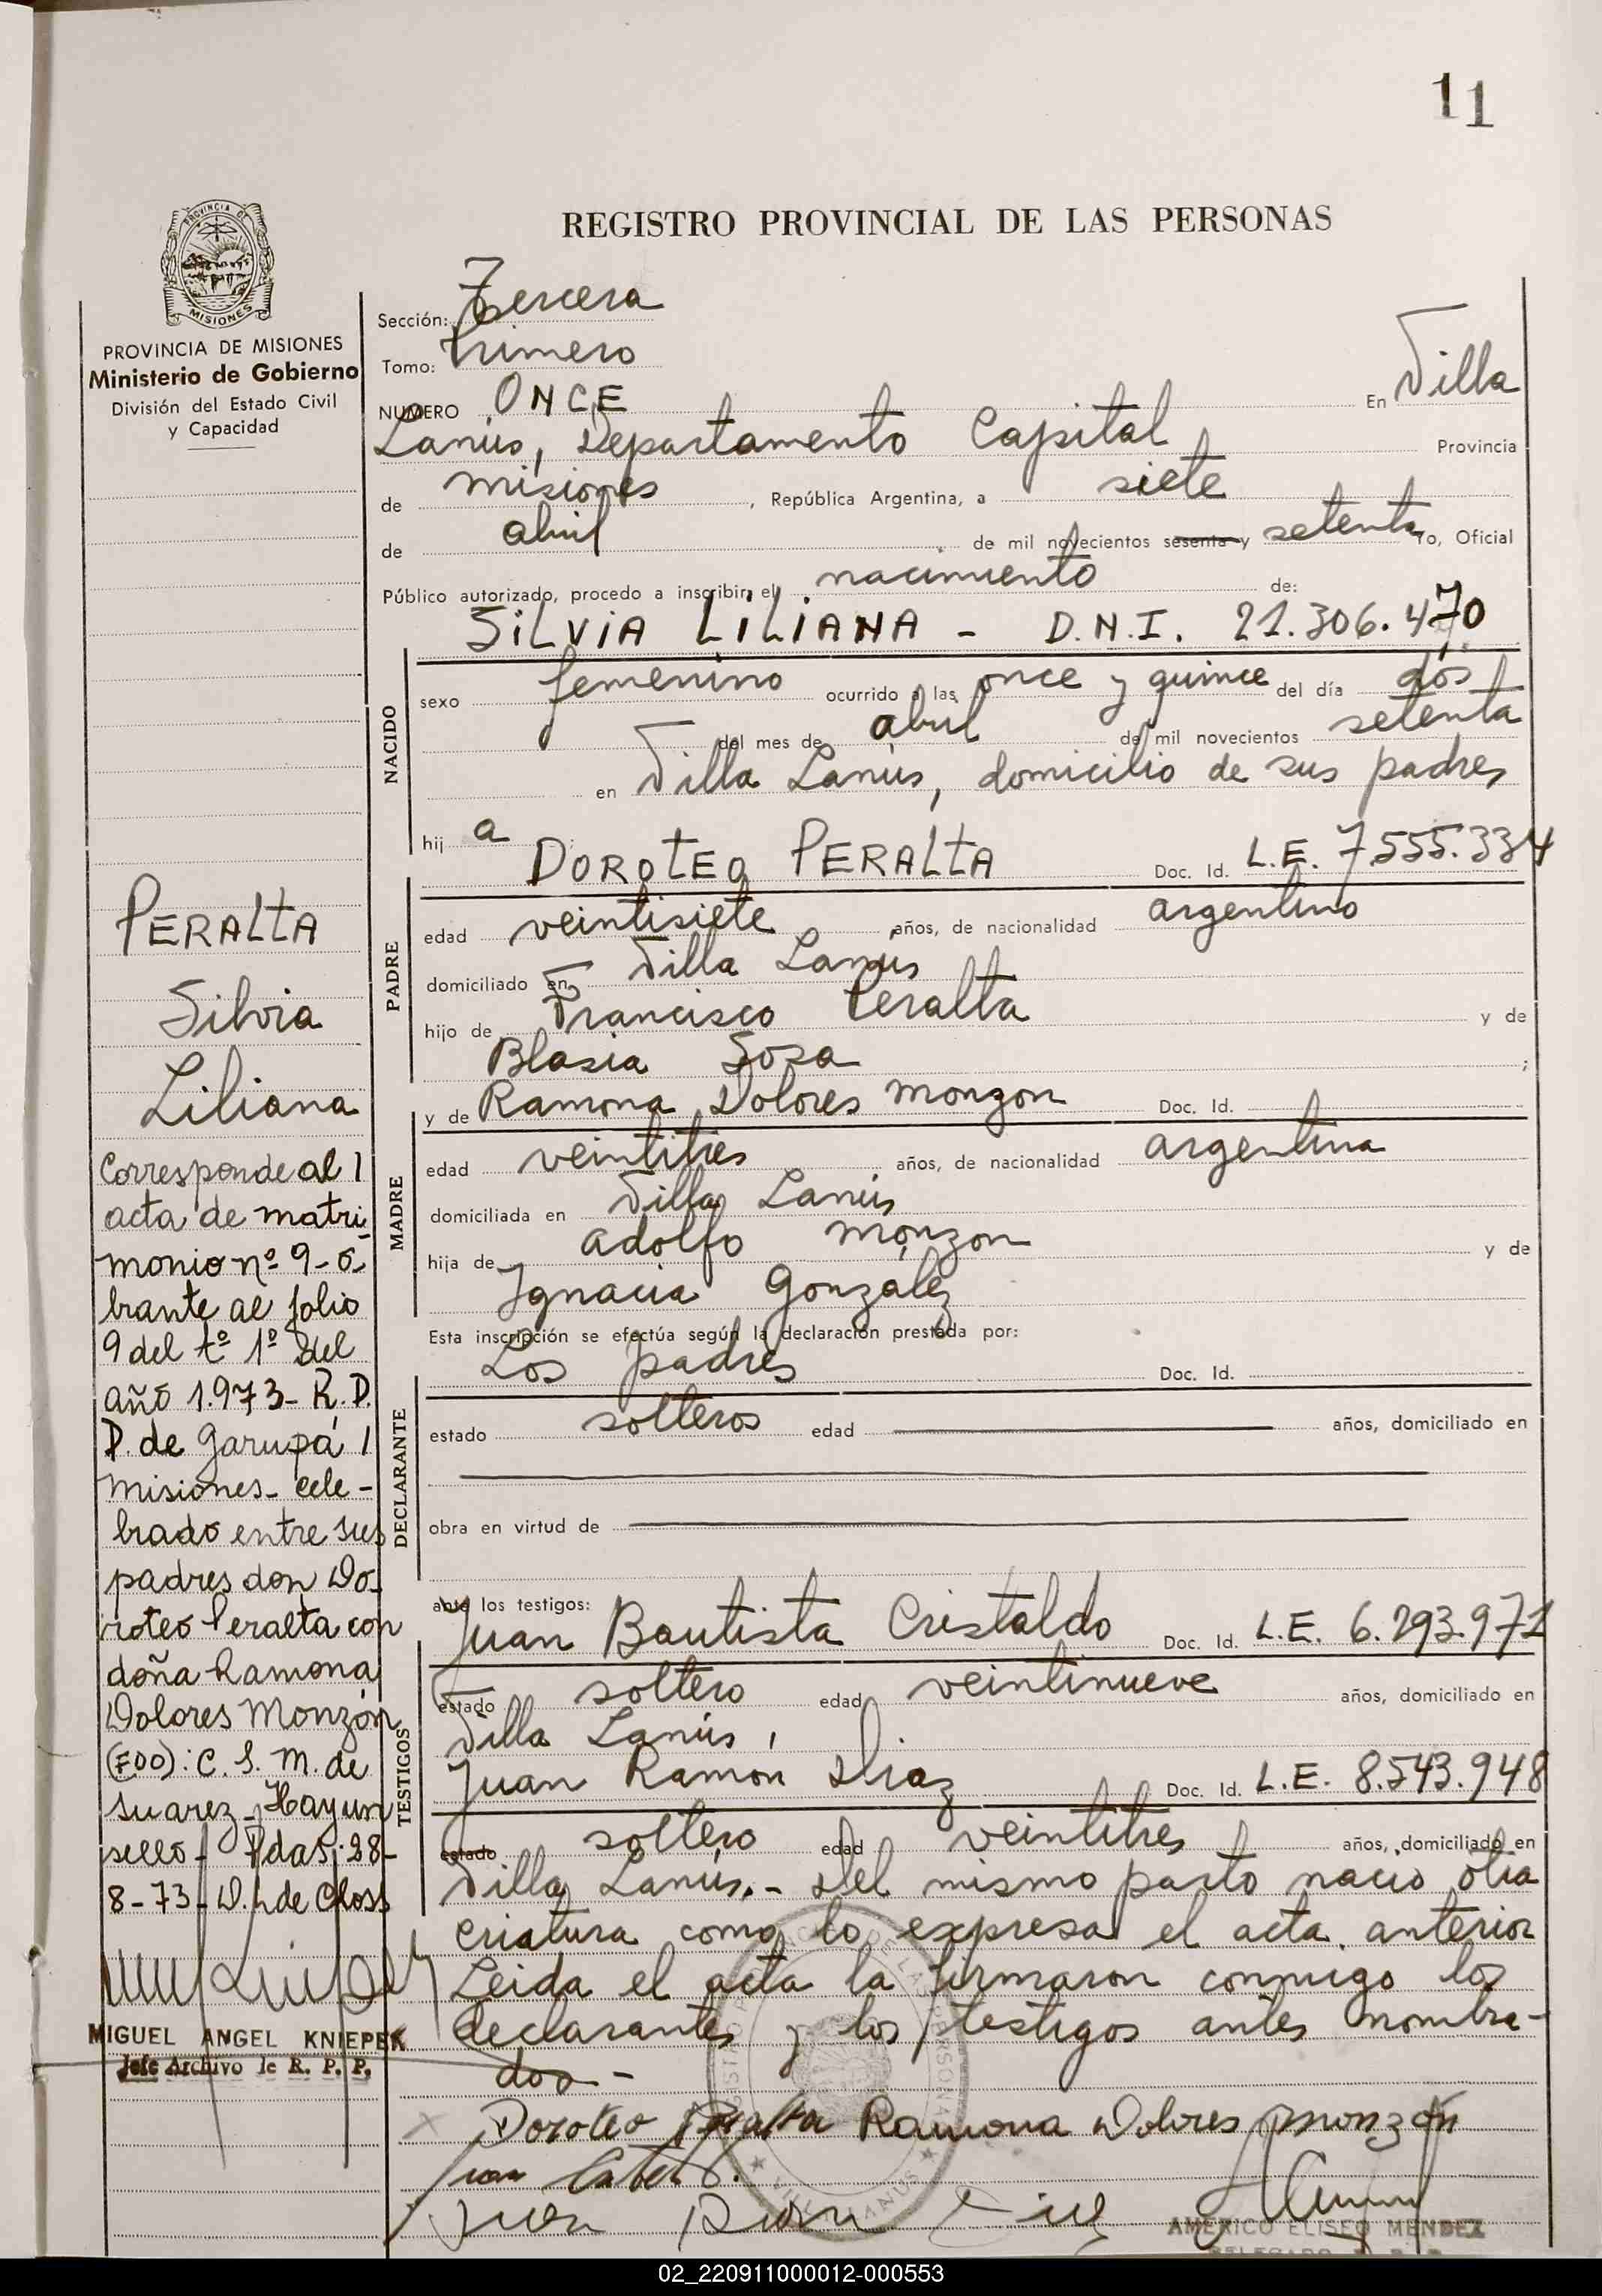 11
REGISTRO PROVINCIAL DE LAS PERSONAS
PROVINCIA DE
MISIONES
PROVINCIA DE MISIONES
Ministerio de Gobierno
División del Estado Civil
y Capacidad
Sección: Tercera
Tomo: Primero
NUMERO ONCE En Villa
Lanús, Departamento Capital Provincia
de Misiones, República Argentina, a siete
de abril de mil novecientos sesenta y setenta Yo, Oficial
Público autorizado, procedo a inscribir el nacimiento de:
SILVIA LILIANA - D.N.I. 21.306.470
NACIDO
sexo femenino ocurrido a las once y quince del día dos
del mes de abril de mil novecientos setenta
en Villa Lanús, domicilio de sus padres
hija DOROTEO PERALTA Doc. Id. L.E. 7.555.334
PADRE
edad veintisiete años, de nacionalidad argentino
domiciliado en Villa Lanus
hijo de Francisco Peralta y de
Blasia Sosa ;
y de Ramona Dolores Monzon Doc. Id.
MADRE
edad veintitres años, de nacionalidad argentina
domiciliada en Villa Lanús
hija de Adolfo Monzon y de
Ignacia González
Esta inscripción se efectúa según la declaración prestada por:
Los padres Doc. Id.
DECLARANTE
estado solteros edad años, domiciliado en
obra en virtud de
ante los testigos:
Juan Bautista Cristaldo Doc. Id. L.E. 6.293.971
TESTIGOS
estado soltero edad veintinueve años, domiciliado en
Villa Lanús,
Juan Ramón Diaz Doc. Id. L.E. 8.543.948
estado soltero edad veintitres años, domiciliado en
Villa Lanús.- Del mismo parto nacio otra
criatura como lo expresa el acta anterior
Leida el acta la firmaron conmigo los
declarantes y los testigos antes nombra-
dos.-
Doroteo Peralta Ramona Dolores Monzon
Juan
Juan Ramon Diaz
AMERICO ELISEO MENDEZ
PERALTA
Silvia
Liliana
Corresponde al /
acta de matri
monio nº 9-o-
brante al folio
9 del tº 1º del
año 1.973- R.P.
P. de Garupá /
Misiones- cele-
brado entre sus
padres don Do-
roteo Peralta con
doña Ramona
Dolores Monzón
(FDO): C. S. M. de
Suarez- Hay un
sello- Pdas: 28-
8-73- D. L. de Closs
MIGUEL ANGEL KNIEPEK
Jefe Archivo de R. P. P.
02_220911000012-000553